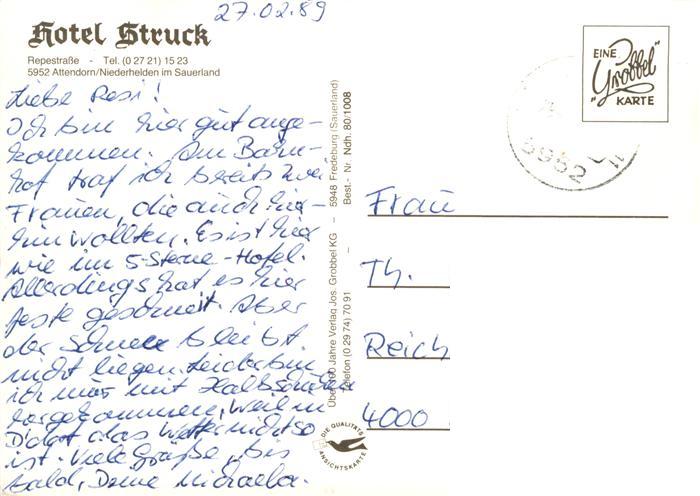 27.02.89
Hotel Struck
Repestraße - Tel. (0 27 21) 15 23
5952 Attendorn/Niederhelden im Sauerland
Liebe Resi!
Ich bin hier gut ange-
kommen. Am Bahn-
hof traf ich bereits zwei
Frauen, die auch hier-
hin wollten. Es ist hier
wie im 5-Sterne-Hotel.
Allerdings hat es hier
feste geschneit. Aber
der Schnee bleibt
nicht liegen. Leider bin
ich nur mit Halbschuhen
hergekommen, weil in
D'dorf das Wetter nicht so
ist. Viele Grüße, bis
bald, Deine Michaela.
Über 60 Jahre Verlag Jos. Grobbel KG - 5948 Fredeburg (Sauerland)
Telefon (0 29 74) 70 91 - Best.-Nr. Ndh. 80/1008
EINE
"Grobbel"
KARTE
5952
Frau
Th.
Reich
4000
DIE QUALITÄTS
ANSICHTSKARTE